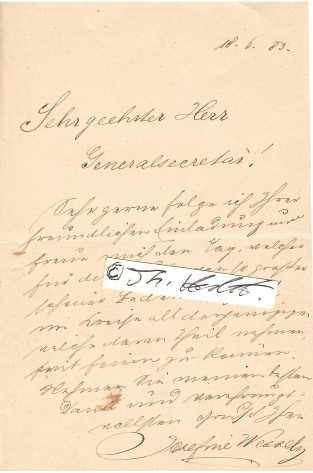 18. 6. 83.
Sehrgeehrter Herr
Generalsecretär!
Sehr gerne folge ich Ihrer
freundlichen Einladung und
freue mich den Tag, welcher
für die so großer
im Kreise all derjenigen
welche daran Theil nehmen
mit feiern zu können.
Nehmen Sie meinen besten
Dank und
vollsten Gruß Ihrer
Josefine Wessely